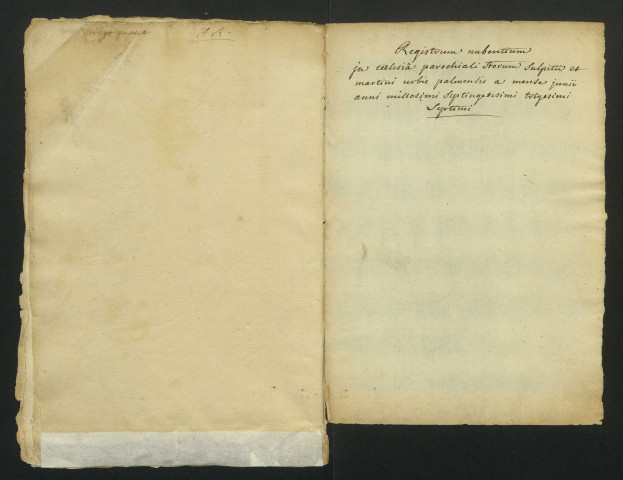 Registrum nubentium
jn ecclesiâ parochiali Storum Sulpitii et
martini urbis palmensis a mense junii
anni millesimi Septingetesimi trigesimi
Septimi